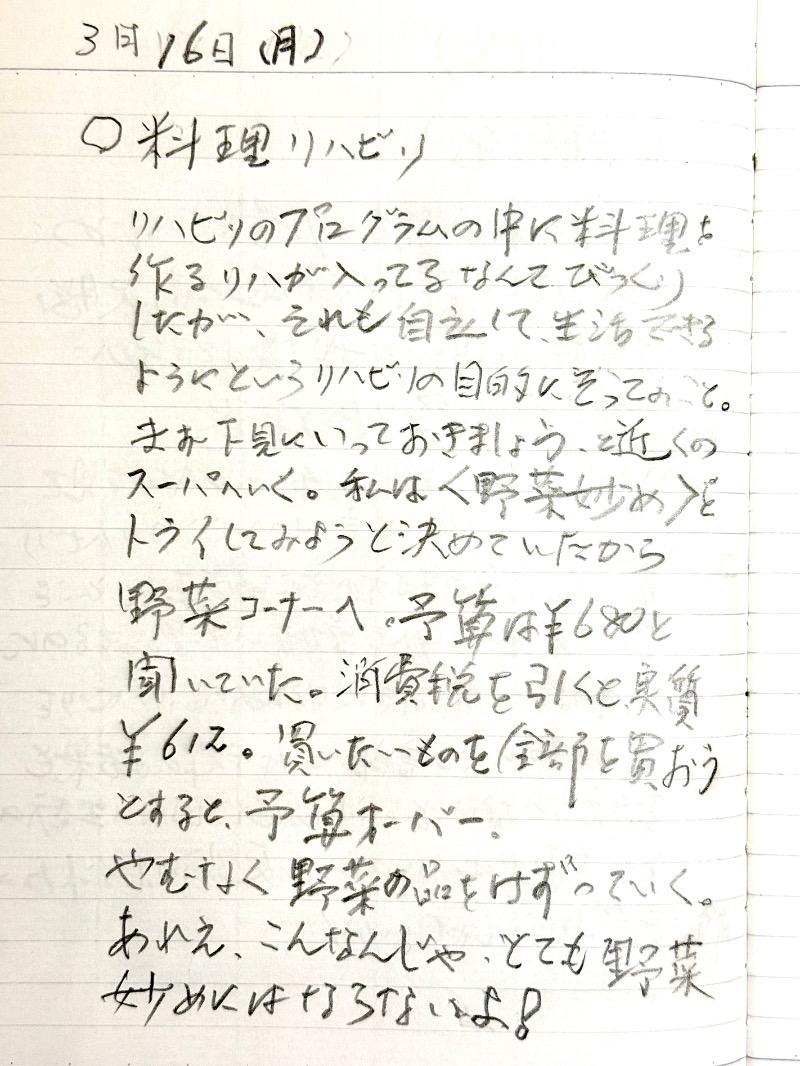 3月16日(月)
○ 料理リハビリ
リハビリのプログラムの中に料理を
作るリハが入ってるなんてびっくり
したが、それも自立して、生活できる
ようにというリハビリの目的にそってのこと。
まず下見にいっておきましょう、と近くの
スーパへいく。私は〈野菜妙め〉を
トライしてみようと決めていたから
野菜コーナーへ。予算は¥680と
聞いていた。消費税を引くと、実質
¥612。買いたいものを全部を買おう
とすると、予算オーバー、
やむなく野菜の品をけずっていく。
あれえ、こんなんじゃ、とても野菜
妙めにはならないよ!